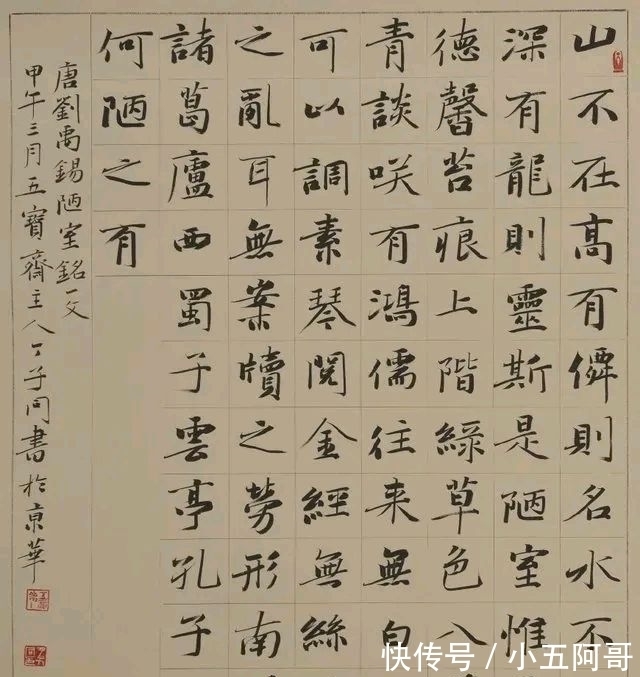 山不在高有僊則名水不
深有龍則靈斯是陋室惟
德馨苔痕上階綠草色入
青談咲有鴻儒往来無白
可以調素琴閱金經無絲
之亂耳無案牘之勞形南
諸葛廬西蜀子雲亭孔子
何陋之有
唐劉禹錫陋室銘一文
甲午三月五寶齋主人丁子同書於京華
快传号/小五阿哥